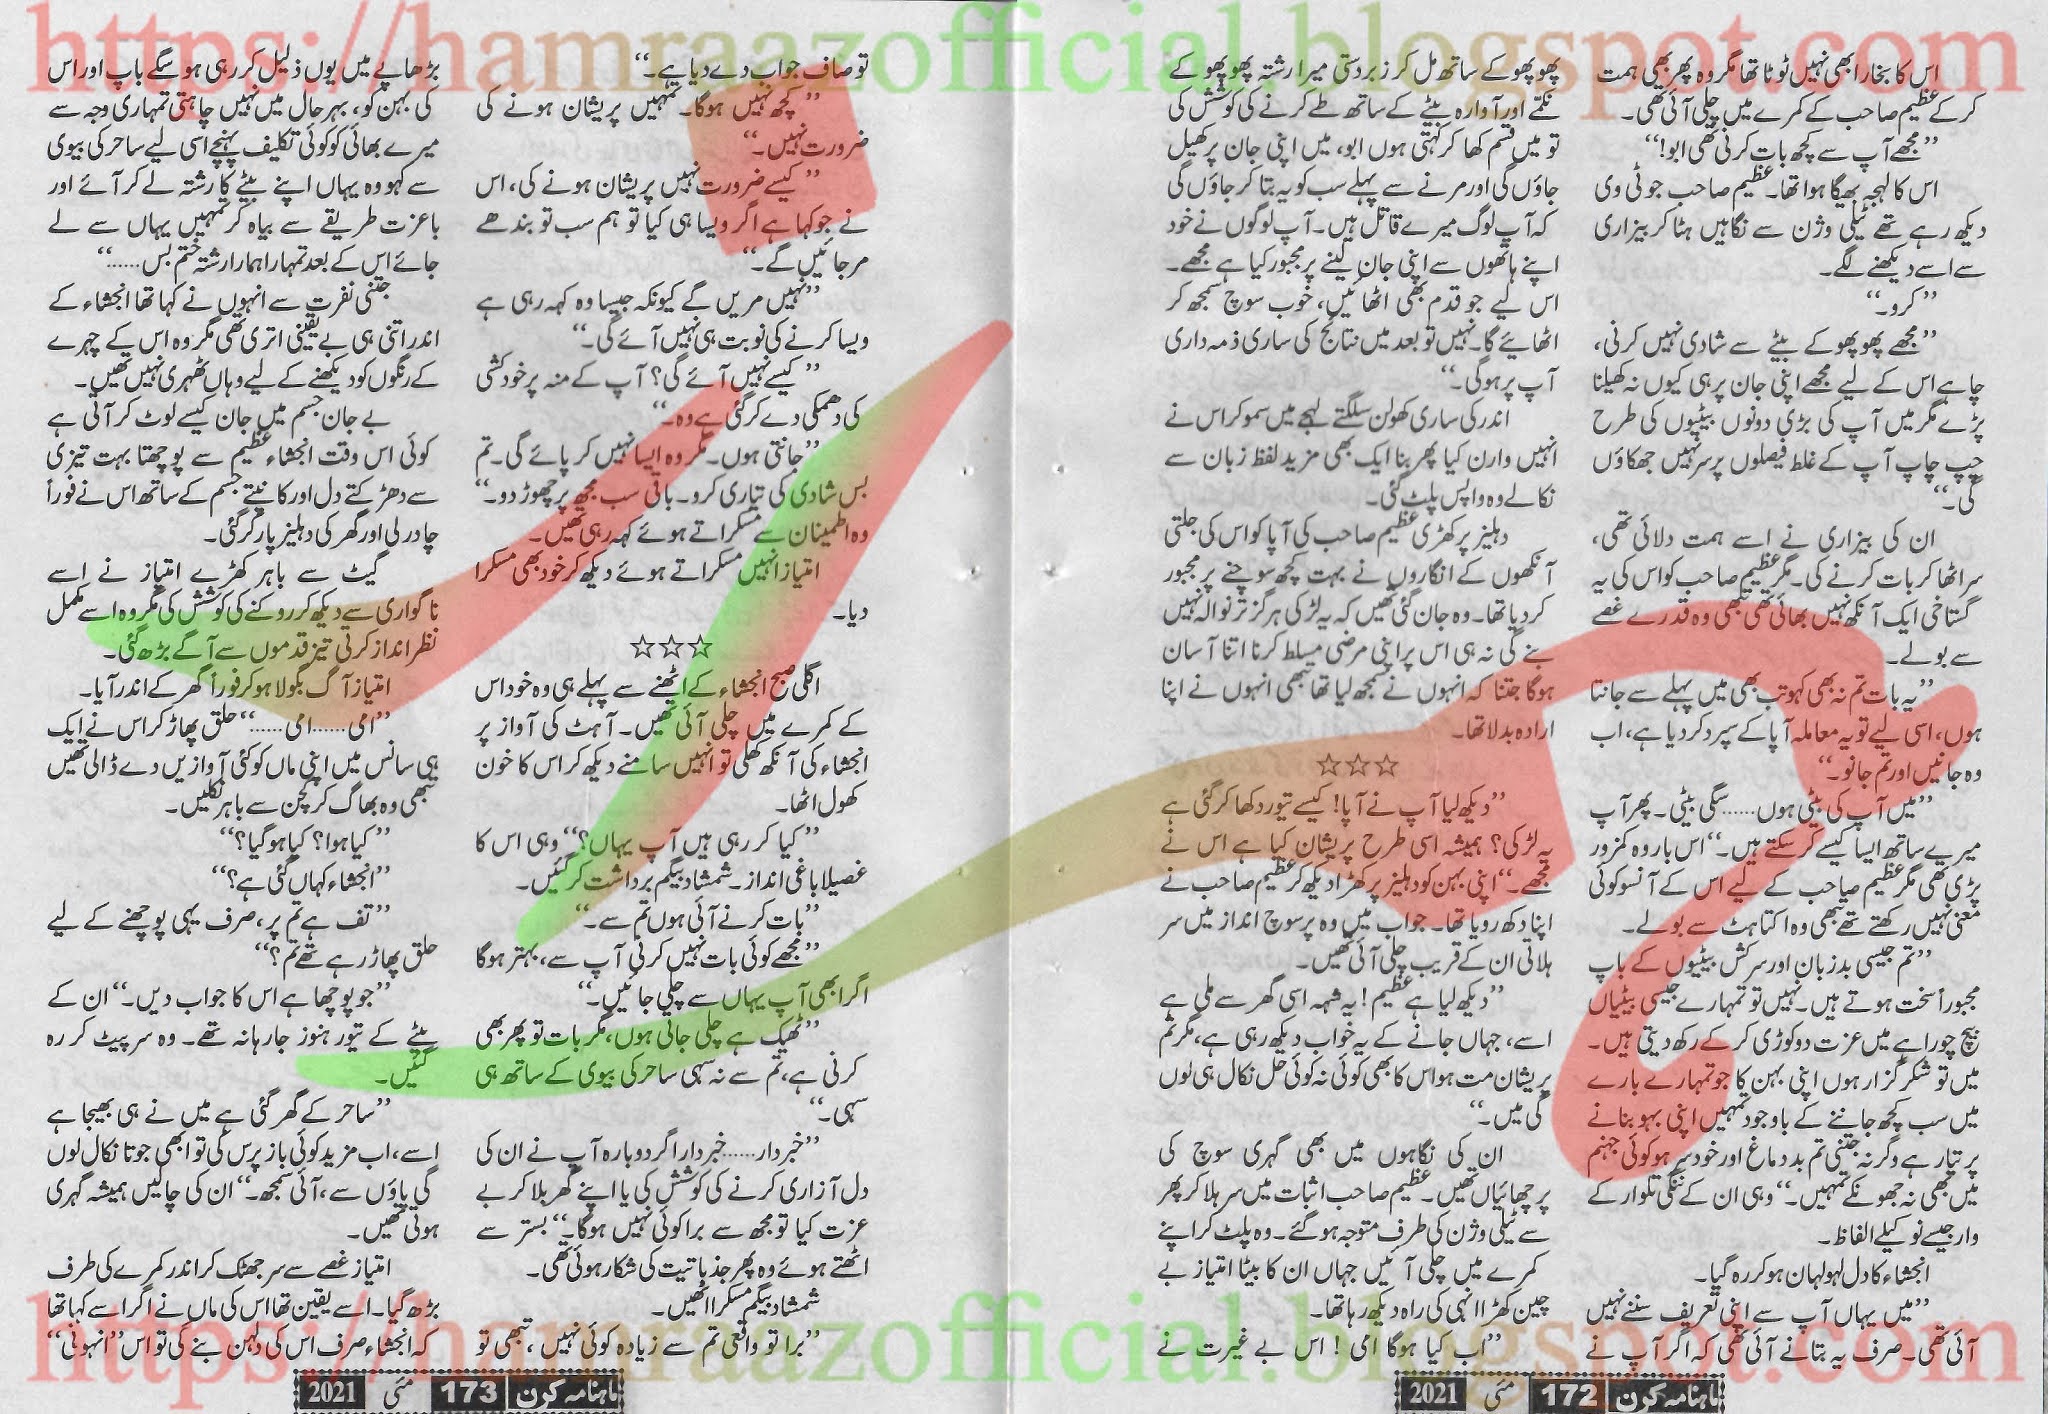 https://hamraazofficial.blogspot.com
اس کا بخار ابھی نہیں ٹوٹا تھا مگر وہ پھر بھی ہمت
کر کے عظیم صاحب کے کمرے میں چلی آئی تھی۔
’’مجھے آپ سے کچھ بات کرنی تھی ابو!‘‘
اس کا لہجہ بھیگا ہوا تھا۔ عظیم صاحب جو ٹی وی
دیکھ رہے تھے ٹیلی وژن سے نگاہیں ہٹا کر بیزاری
سے اسے دیکھنے لگے۔
’’کرو۔‘‘
’’مجھے پھوپھو کے بیٹے سے شادی نہیں کرنی،
چاہے اس کے لیے مجھے اپنی جان پر ہی کیوں نہ کھیلنا
پڑے مگر میں آپ کی بڑی دونوں بیٹیوں کی طرح
چپ چاپ آپ کے غلط فیصلوں پر سر نہیں جھکاؤں
گی۔‘‘
ان کی بیزاری نے اسے ہمت دلائی تھی،
سر اٹھا کر بات کرنے کی۔ مگر عظیم صاحب کو اس کی یہ
گستاخی ایک آنکھ نہیں بھائی تھی تبھی وہ قدرے غصے
سے بولے۔
’’یہ بات تم نہ بھی کہو تب بھی میں پہلے سے جانتا
ہوں، اسی لیے تو یہ معاملہ آپا کے سپرد کر دیا ہے، اب
وہ جانیں اور تم جانو۔‘‘
’’میں آپ کی بیٹی ہوں...... سگی بیٹی۔ پھر آپ
میرے ساتھ ایسا کیسے کر سکتے ہیں۔‘‘ اس بار وہ کمزور
پڑی تھی مگر عظیم صاحب کے لیے اس کے آنسو کوئی
معنی نہیں رکھتے تھے تبھی وہ اکتاہٹ سے بولے۔
’’تم جیسی بدزبان اور سرکش بیٹیوں کے باپ
مجبوراً سخت ہوتے ہیں۔ نہیں تو تمہارے جیسی بیٹیاں
بیچ چوراہے میں عزت دو کوڑی کر کے رکھ دیتی ہیں۔
میں تو شکر گزار ہوں اپنی بہن کا جو تمہارے بارے
میں سب کچھ جاننے کے باوجود تمہیں اپنی بہو بنانے
پر تیار ہے وگرنہ جتنی تم بددماغ اور خودسر ہو کوئی جہنم
میں بھی نہ جھونکے تمہیں۔‘‘ وہی ان کے ننگی تلوار کے
وار جیسے نوکیلے الفاظ۔
انجشاء کا دل لہولہان ہو کر رہ گیا۔
’’میں یہاں آپ سے اپنی تعریف سننے نہیں
آئی تھی۔ صرف یہ بتانے آئی تھی کہ اگر آپ نے
پھوپھو کے ساتھ مل کر زبردستی میرا رشتہ پھوپھو کے
نکمے اور آوارہ بیٹے کے ساتھ طے کرنے کی کوشش کی
تو میں قسم کھا کر کہتی ہوں ابو، میں اپنی جان پر کھیل
جاؤں گی اور مرنے سے پہلے سب کو یہ بتا کر جاؤں گی
کہ آپ لوگ میرے قاتل ہیں۔ آپ لوگوں نے خود
اپنے ہاتھوں سے اپنی جان لینے پر مجبور کیا ہے مجھے۔
اس لیے جو قدم بھی اٹھائیں، خوب سوچ سمجھ کر
اٹھائیے گا۔ نہیں تو بعد میں نتائج کی ساری ذمہ داری
آپ پر ہوگی۔‘‘
اندر کی ساری کھولن سلگتے لہجے میں سمو کر اس نے
انہیں وارن کیا پھر بنا ایک بھی مزید لفظ زبان سے
نکالے وہ واپس پلٹ گئی۔
دہلیز پر کھڑی عظیم صاحب کی آپا کو اس کی جلتی
آنکھوں کے انگاروں نے بہت کچھ سوچنے پر مجبور
کر دیا تھا۔ وہ جان گئی تھیں کہ یہ لڑکی ہرگز تر نوالہ نہیں
بنے گی نہ ہی اس پر اپنی مرضی مسلط کرنا اتنا آسان
ہوگا جتنا کہ انہوں نے سمجھ لیا تھا تبھی انہوں نے اپنا
ارادہ بدلا تھا۔
☆☆☆
’’دیکھ لیا آپ نے آپا! کیسے تیور دکھا کر گئی ہے
یہ لڑکی؟ ہمیشہ اسی طرح پریشان کیا ہے اس نے
مجھے۔‘‘ اپنی بہن کو دہلیز پر کھڑا دیکھ کر عظیم صاحب نے
اپنا دکھ رویا تھا۔ جواب میں وہ پرسوچ انداز میں سر
ہلاتی ان کے قریب چلی آئی تھیں۔
’’دیکھ لیا ہے عظیم! یہ شہہ اسی گھر سے ملی ہے
اسے، جہاں جانے کے یہ خواب دیکھ رہی ہے، مگر تم
پریشان مت ہو اس کا بھی کوئی نہ کوئی حل نکال ہی لوں
گی میں۔‘‘
ان کی نگاہوں میں بھی گہری سوچ کی
پرچھائیاں تھیں۔ عظیم صاحب اثبات میں سر ہلا کر پھر
سے ٹیلی وژن کی طرف متوجہ ہو گئے۔ وہ پلٹ کر اپنے
کمرے میں چلی آئیں جہاں ان کا بیٹا امتیاز بے
چین کھڑا انہی کی راہ دیکھ رہا تھا۔
’’اب کیا ہوگا امی! اس بے غیرت نے
ماہنامہ کرن 172 مئی 2021
تو صاف جواب دے دیا ہے۔‘‘
’’کچھ نہیں ہوگا۔ تمہیں پریشان ہونے کی
ضرورت نہیں۔‘‘
’’کیسے ضرورت نہیں پریشان ہونے کی، اس
نے جو کہا ہے اگر ویسا ہی کیا تو ہم سب تو بندھے
مر جائیں گے۔‘‘
’’نہیں مریں گے کیونکہ جیسا وہ کہہ رہی ہے
ویسا کرنے کی نوبت ہی نہیں آئے گی۔‘‘
’’کیسے نہیں آئے گی؟ آپ کے منہ پر خودکشی
کی دھمکی دے کر گئی ہے وہ۔‘‘
’’جانتی ہوں۔ مگر وہ ایسا نہیں کر پائے گی۔ تم
بس شادی کی تیاری کرو۔ باقی سب مجھ پر چھوڑ دو۔‘‘
وہ اطمینان سے مسکراتے ہوئے کہہ رہی تھیں۔
امتیاز انہیں مسکراتے ہوئے دیکھ کر خود بھی مسکرا
دیا۔
☆☆☆
اگلی صبح انجشاء کے اٹھنے سے پہلے ہی وہ خود اس
کے کمرے میں چلی آئی تھیں۔ آہٹ کی آواز پر
انجشاء کی آنکھ کھلی تو انہیں سامنے دیکھ کر اس کا خون
کھول اٹھا۔
’’کیا کر رہی ہیں آپ یہاں؟‘‘ وہی اس کا
غصیلا باغی انداز۔ شمشاد بیگم برداشت کر گئیں۔
’’بات کرنے آئی ہوں تم سے۔‘‘
’’مجھے کوئی بات نہیں کرنی آپ سے، بہتر ہوگا
اگر ابھی آپ یہاں سے چلی جائیں۔‘‘
’’ٹھیک ہے چلی جاتی ہوں، مگر بات تو پھر بھی
کرنی ہے، تم سے نہ سہی ساحر کی بیوی کے ساتھ ہی
سہی۔‘‘
’’خبردار...... خبردار اگر دوبارہ آپ نے ان کی
دل آزاری کرنے کی کوشش کی یا اپنے گھر بلا کر بے
عزت کیا تو مجھ سے برا کوئی نہیں ہوگا۔‘‘ بستر سے
اٹھتے ہوئے وہ پھر جذباتیت کی شکار ہوئی تھی۔
شمشاد بیگم مسکرا اٹھیں۔
’’برا تو واقعی تم سے زیادہ کوئی نہیں، تبھی تو
بڑھاپے میں یوں ذلیل کر رہی ہو سگے باپ اور اس
کی بہن کو، بہرحال میں نہیں چاہتی تمہاری وجہ سے
میرے بھائی کو کوئی تکلیف پہنچے اسی لیے ساحر کی بیوی
سے کہو وہ یہاں اپنے بیٹے کا رشتہ لے کر آئے اور
باعزت طریقے سے بیاہ کر تمہیں یہاں سے لے
جائے اس کے بعد تمہارا ہمارا رشتہ ختم بس......‘‘
جتنی نفرت سے انہوں نے کہا تھا انجشاء کے
اندر اتنی ہی بے یقینی اتری تھی مگر وہ اس کے چہرے
کے رنگوں کو دیکھنے کے لیے وہاں ٹھہری نہیں تھیں۔
بے جان جسم میں جان کیسے لوٹ کر آتی ہے
کوئی اس وقت انجشاء عظیم سے پوچھتا بہت تیزی
سے دھڑکتے دل اور کانپتے جسم کے ساتھ اس نے فوراً
چادر لی اور گھر کی دہلیز پار کر گئی۔
گیٹ سے باہر کھڑے امتیاز نے اسے
ناگواری سے دیکھ کر روکنے کی کوشش کی مگر وہ اسے مکمل
نظر انداز کرتی تیز قدموں سے آگے بڑھ گئی۔
امتیاز آگ بگولا ہو کر فوراً گھر کے اندر آیا۔
’’امی...... امی......‘‘ حلق پھاڑ کر اس نے ایک
ہی سانس میں اپنی ماں کو کئی آوازیں دے ڈالی تھیں
تبھی وہ بھاگ کر کچن سے باہر نکلیں۔
’’کیا ہوا؟ کیا ہو گیا؟‘‘
’’انجشاء کہاں گئی ہے؟‘‘
’’تف ہے تم پر، صرف یہی پوچھنے کے لیے
حلق پھاڑ رہے تھے تم؟‘‘
’’جو پوچھا ہے اس کا جواب دیں۔‘‘ ان کے
بیٹے کے تیور ہنوز جارہانہ تھے۔ وہ سر پیٹ کر رہ
گئیں۔
’’ساحر کے گھر گئی ہے میں نے ہی بھیجا ہے
اسے، اب مزید کوئی باز پرس کی تو ابھی جوتا نکال لوں
گی پاؤں سے، آئی سمجھ۔‘‘ ان کی چالیں ہمیشہ گہری
ہوتی تھیں۔
امتیاز غصے سے سر جھٹک کر اندر کمرے کی طرف
بڑھ گیا۔ اسے یقین تھا اس کی ماں نے اگر اسے کہا تھا
کہ انجشاء صرف اس کی دلہن بنے گی تو اس ’’انہونی‘‘
ماہنامہ کرن 173 مئی 2021
https://hamraazofficial.blogspot.com